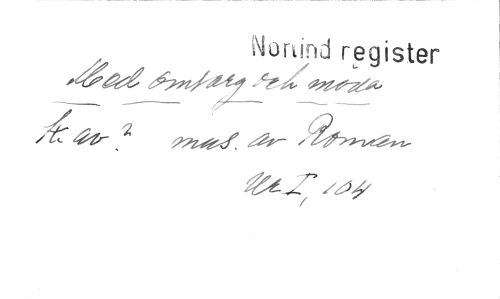 Norlind register
Med omsorg och möda
tx. av? mus. av Roman
Ur I, 104